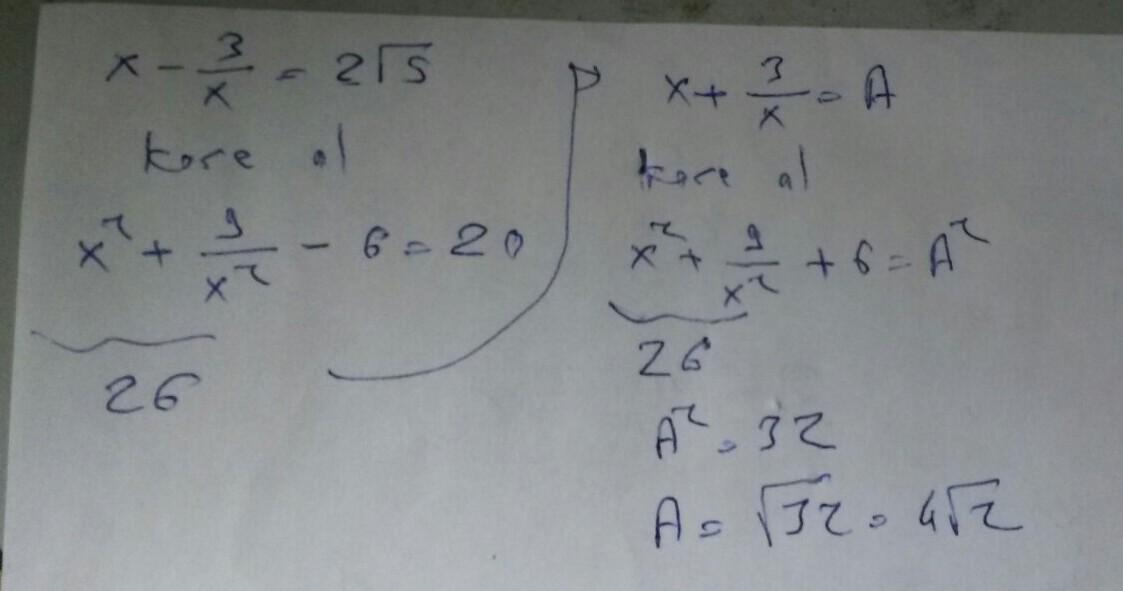 x - 3/x = 2√5
kare al
x² + 9/x² - 6 = 20
26
x + 3/x = A
kare al
x² + 9/x² + 6 = A²
26
A² = 32
A = √32 = 4√2